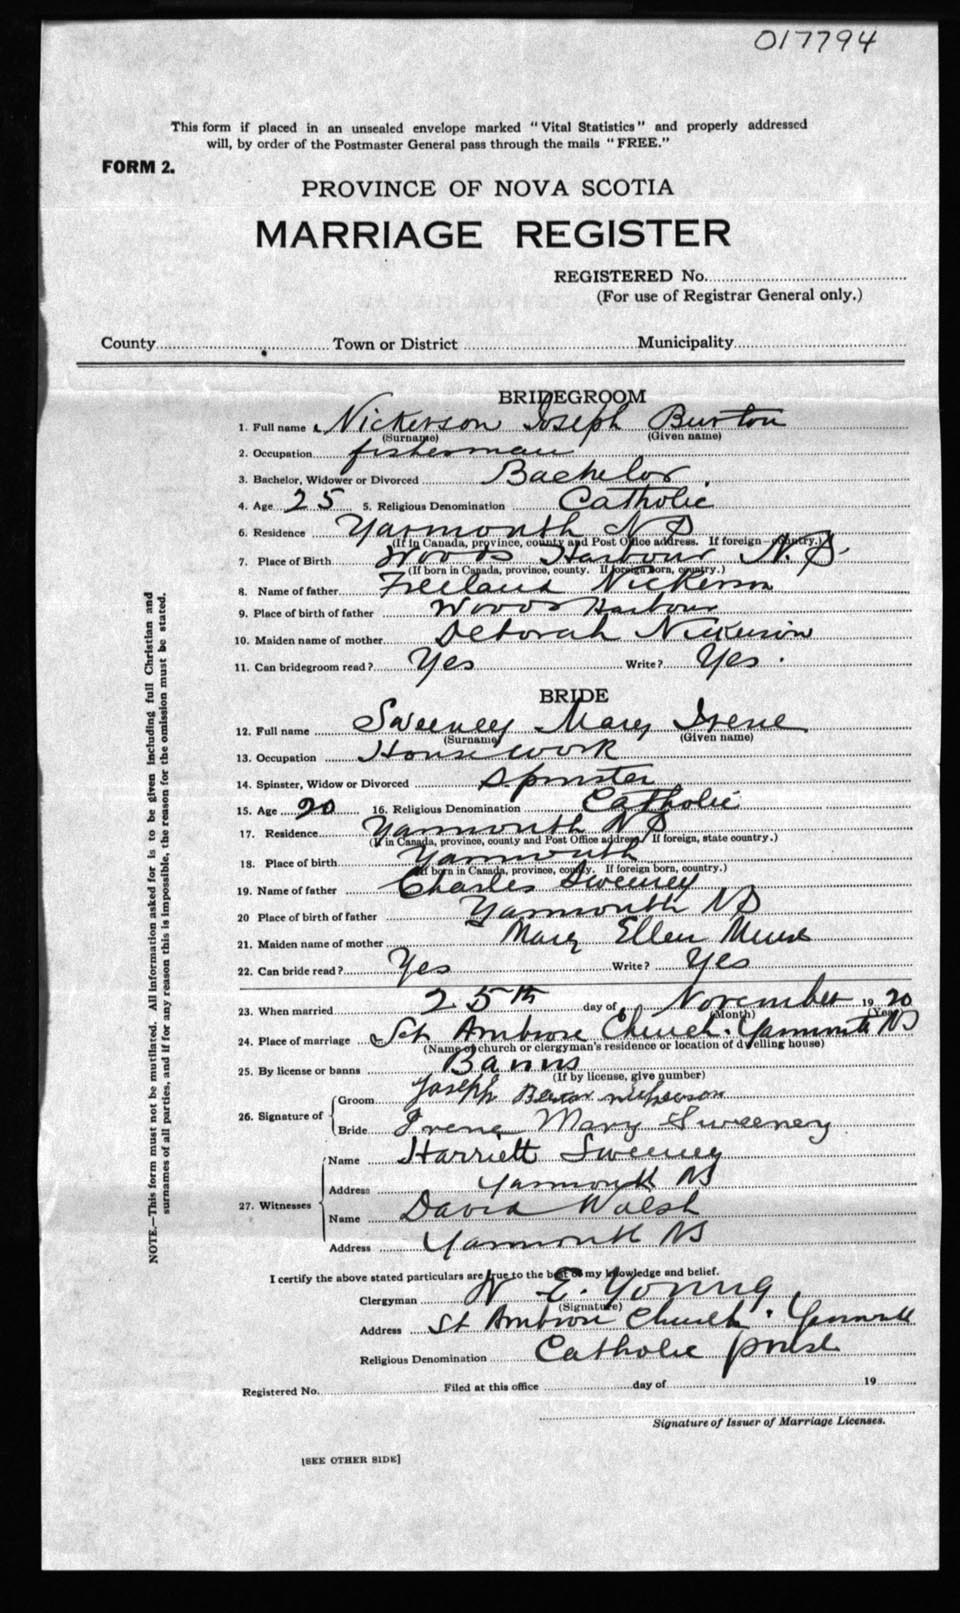 017794
This form if placed in an unsealed envelope marked "Vital Statistics" and properly addressed
will, by order of the Postmaster General pass through the mails "FREE."
FORM 2.
PROVINCE OF NOVA SCOTIA
MARRIAGE REGISTER
REGISTERED No.
(For use of Registrar General only.)
County Town or District Municipality
BRIDEGROOM
1. Full name Nickerson Joseph Burton
(Surname) (Given name)
2. Occupation fisherman
3. Bachelor, Widower or Divorced Bachelor
4. Age 25 5. Religious Denomination Catholic
6. Residence Yarmouth N S
(If in Canada, province, county and Post Office address. If foreign—country.)
7. Place of Birth Woods Harbour N.S.
(If born in Canada, province, county. If foreign born, country.)
8. Name of father Freeland Nickerson
9. Place of birth of father Woods Harbour
10. Maiden name of mother Deborah Nickerson
11. Can bridegroom read? Yes Write? Yes.
BRIDE
12. Full name Sweeney Mary Irene
(Surname) (Given name)
13. Occupation Housework
14. Spinster, Widow or Divorced Spinster
15. Age 20 16. Religious Denomination Catholic
17. Residence Yarmouth N S
(If in Canada, province, county and Post Office address. If foreign, state country.)
18. Place of birth Yarmouth
(If born in Canada, province, county. If foreign born, country.)
19. Name of father Charles Sweeney
20 Place of birth of father Yarmouth N S
21. Maiden name of mother Mary Ellen Muise
22. Can bride read? Yes Write? Yes
23. When married 25th day of November 19 20
(Month) (Year)
24. Place of marriage St Ambrose Church. Yarmouth N S
(Name of church or clergyman's residence or location of dwelling house)
25. By license or banns Banns
(If by license, give number)
26. Signature of
Groom Joseph Burton Nickerson
Bride Irene Mary Sweeney
27. Witnesses
Name Harriett Sweeney
Address Yarmouth N S
Name David Walsh
Address Yarmouth N S
I certify the above stated particulars are true to the best of my knowledge and belief.
Clergyman W E. Young
(Signature)
Address St Ambrose Church. Yarmouth
Religious Denomination Catholic priest
Registered No. Filed at this office day of 19
Signature of Issuer of Marriage Licenses.
[SEE OTHER SIDE]
NOTE.—This form must not be mutilated. All information asked for is to be given including full Christian and
surnames of all parties, and if for any reason this is impossible, the reason for the omission must be stated.